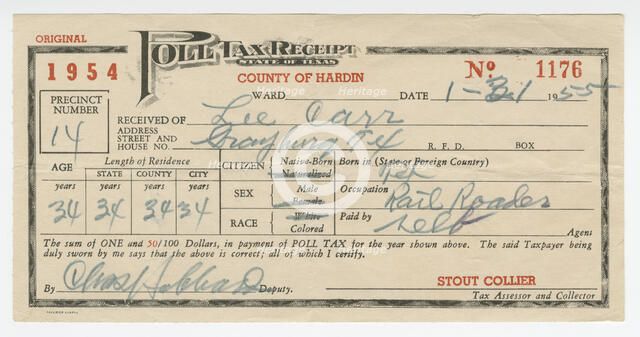 ORIGINAL
POLL TAX RECEIPT
STATE OF TEXAS
1954
COUNTY OF HARDIN
No 1176
WARD DATE 1-31 1955
PRECINCT NUMBER
14
RECEIVED OF Lee Carr
ADDRESS
STREET AND
HOUSE NO. Grayburg Tex R. F. D. BOX
AGE Length of Residence
years STATE years COUNTY years CITY years
34 34 34 34
CITIZEN Native-Born Naturalized Born in (State or Foreign Country) Tex
SEX Male Female Occupation Rail Roader
RACE White Colored Paid by self Agent
The sum of ONE and 50/100 Dollars, in payment of POLL TAX for the year shown above. The said Taxpayer being
duly sworn by me says that the above is correct; all of which I certify.
By Chas Hubbard Deputy.
STOUT COLLIER
Tax Assessor and Collector
Heritage